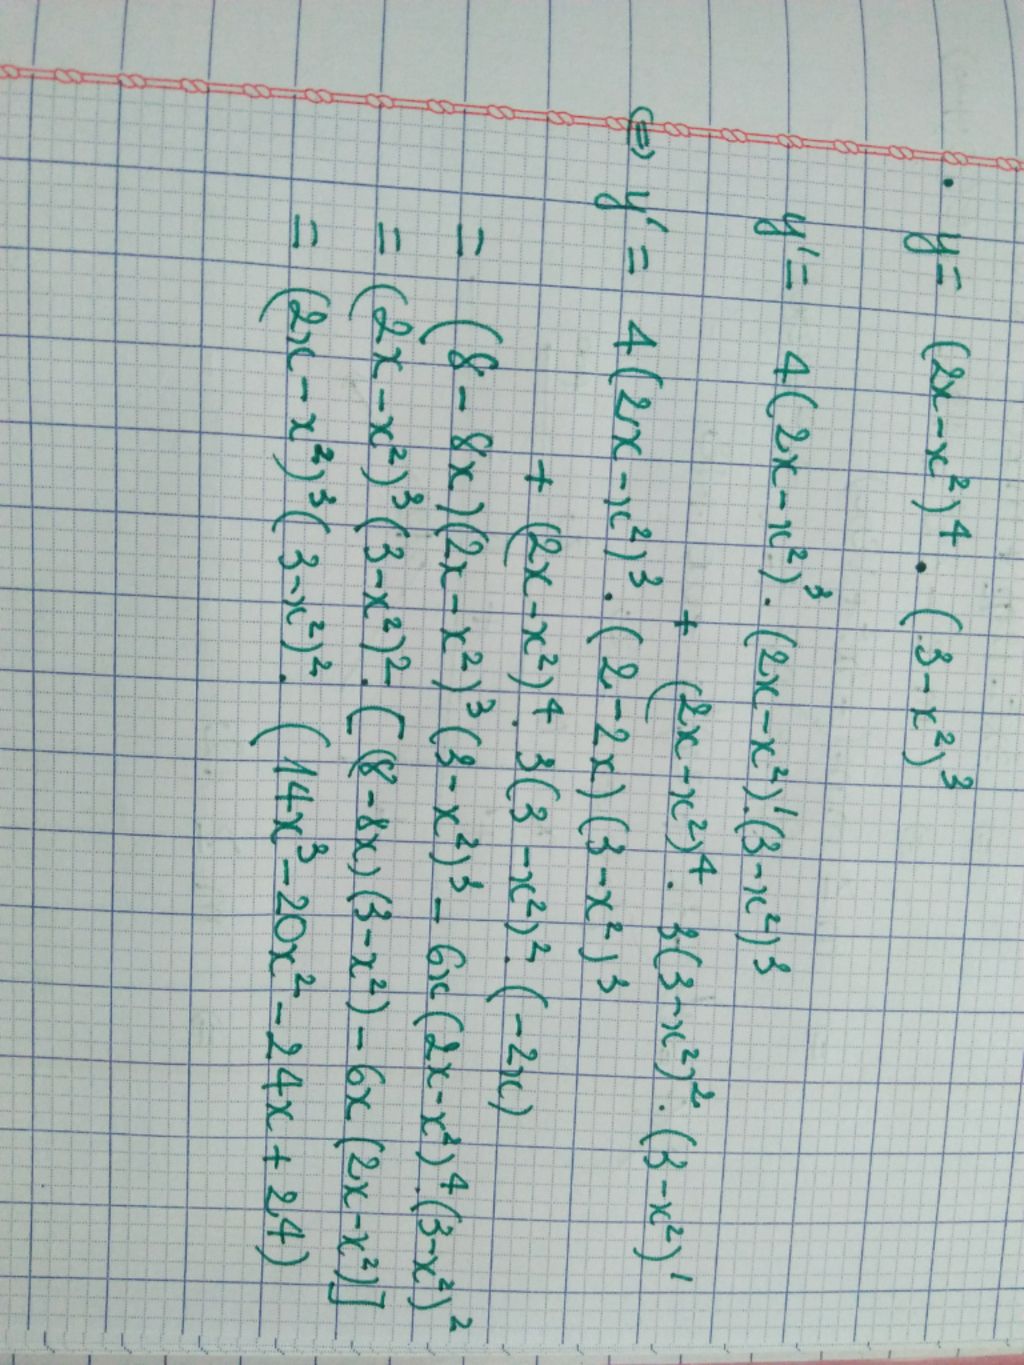 • y = (2x - x²)⁴ . (3 - x²)³
y' = 4(2x - x²)³ . (2x - x²)' . (3 - x²)³
+ (2x - x²)⁴ . 3(3 - x²)² . (3 - x²)'
(=) y' = 4(2x - x²)³ . (2 - 2x)(3 - x²)³
+ (2x - x²)⁴ . 3(3 - x²)² . (-2x)
= (8 - 8x)(2x - x²)³(3 - x²)³ - 6x(2x - x²)⁴ . (3 - x²)²
= (2x - x²)³(3 - x²)² . [(8 - 8x)(3 - x²) - 6x(2x - x²)]
= (2x - x²)³(3 - x²)² . (14x³ - 20x² - 24x + 24)